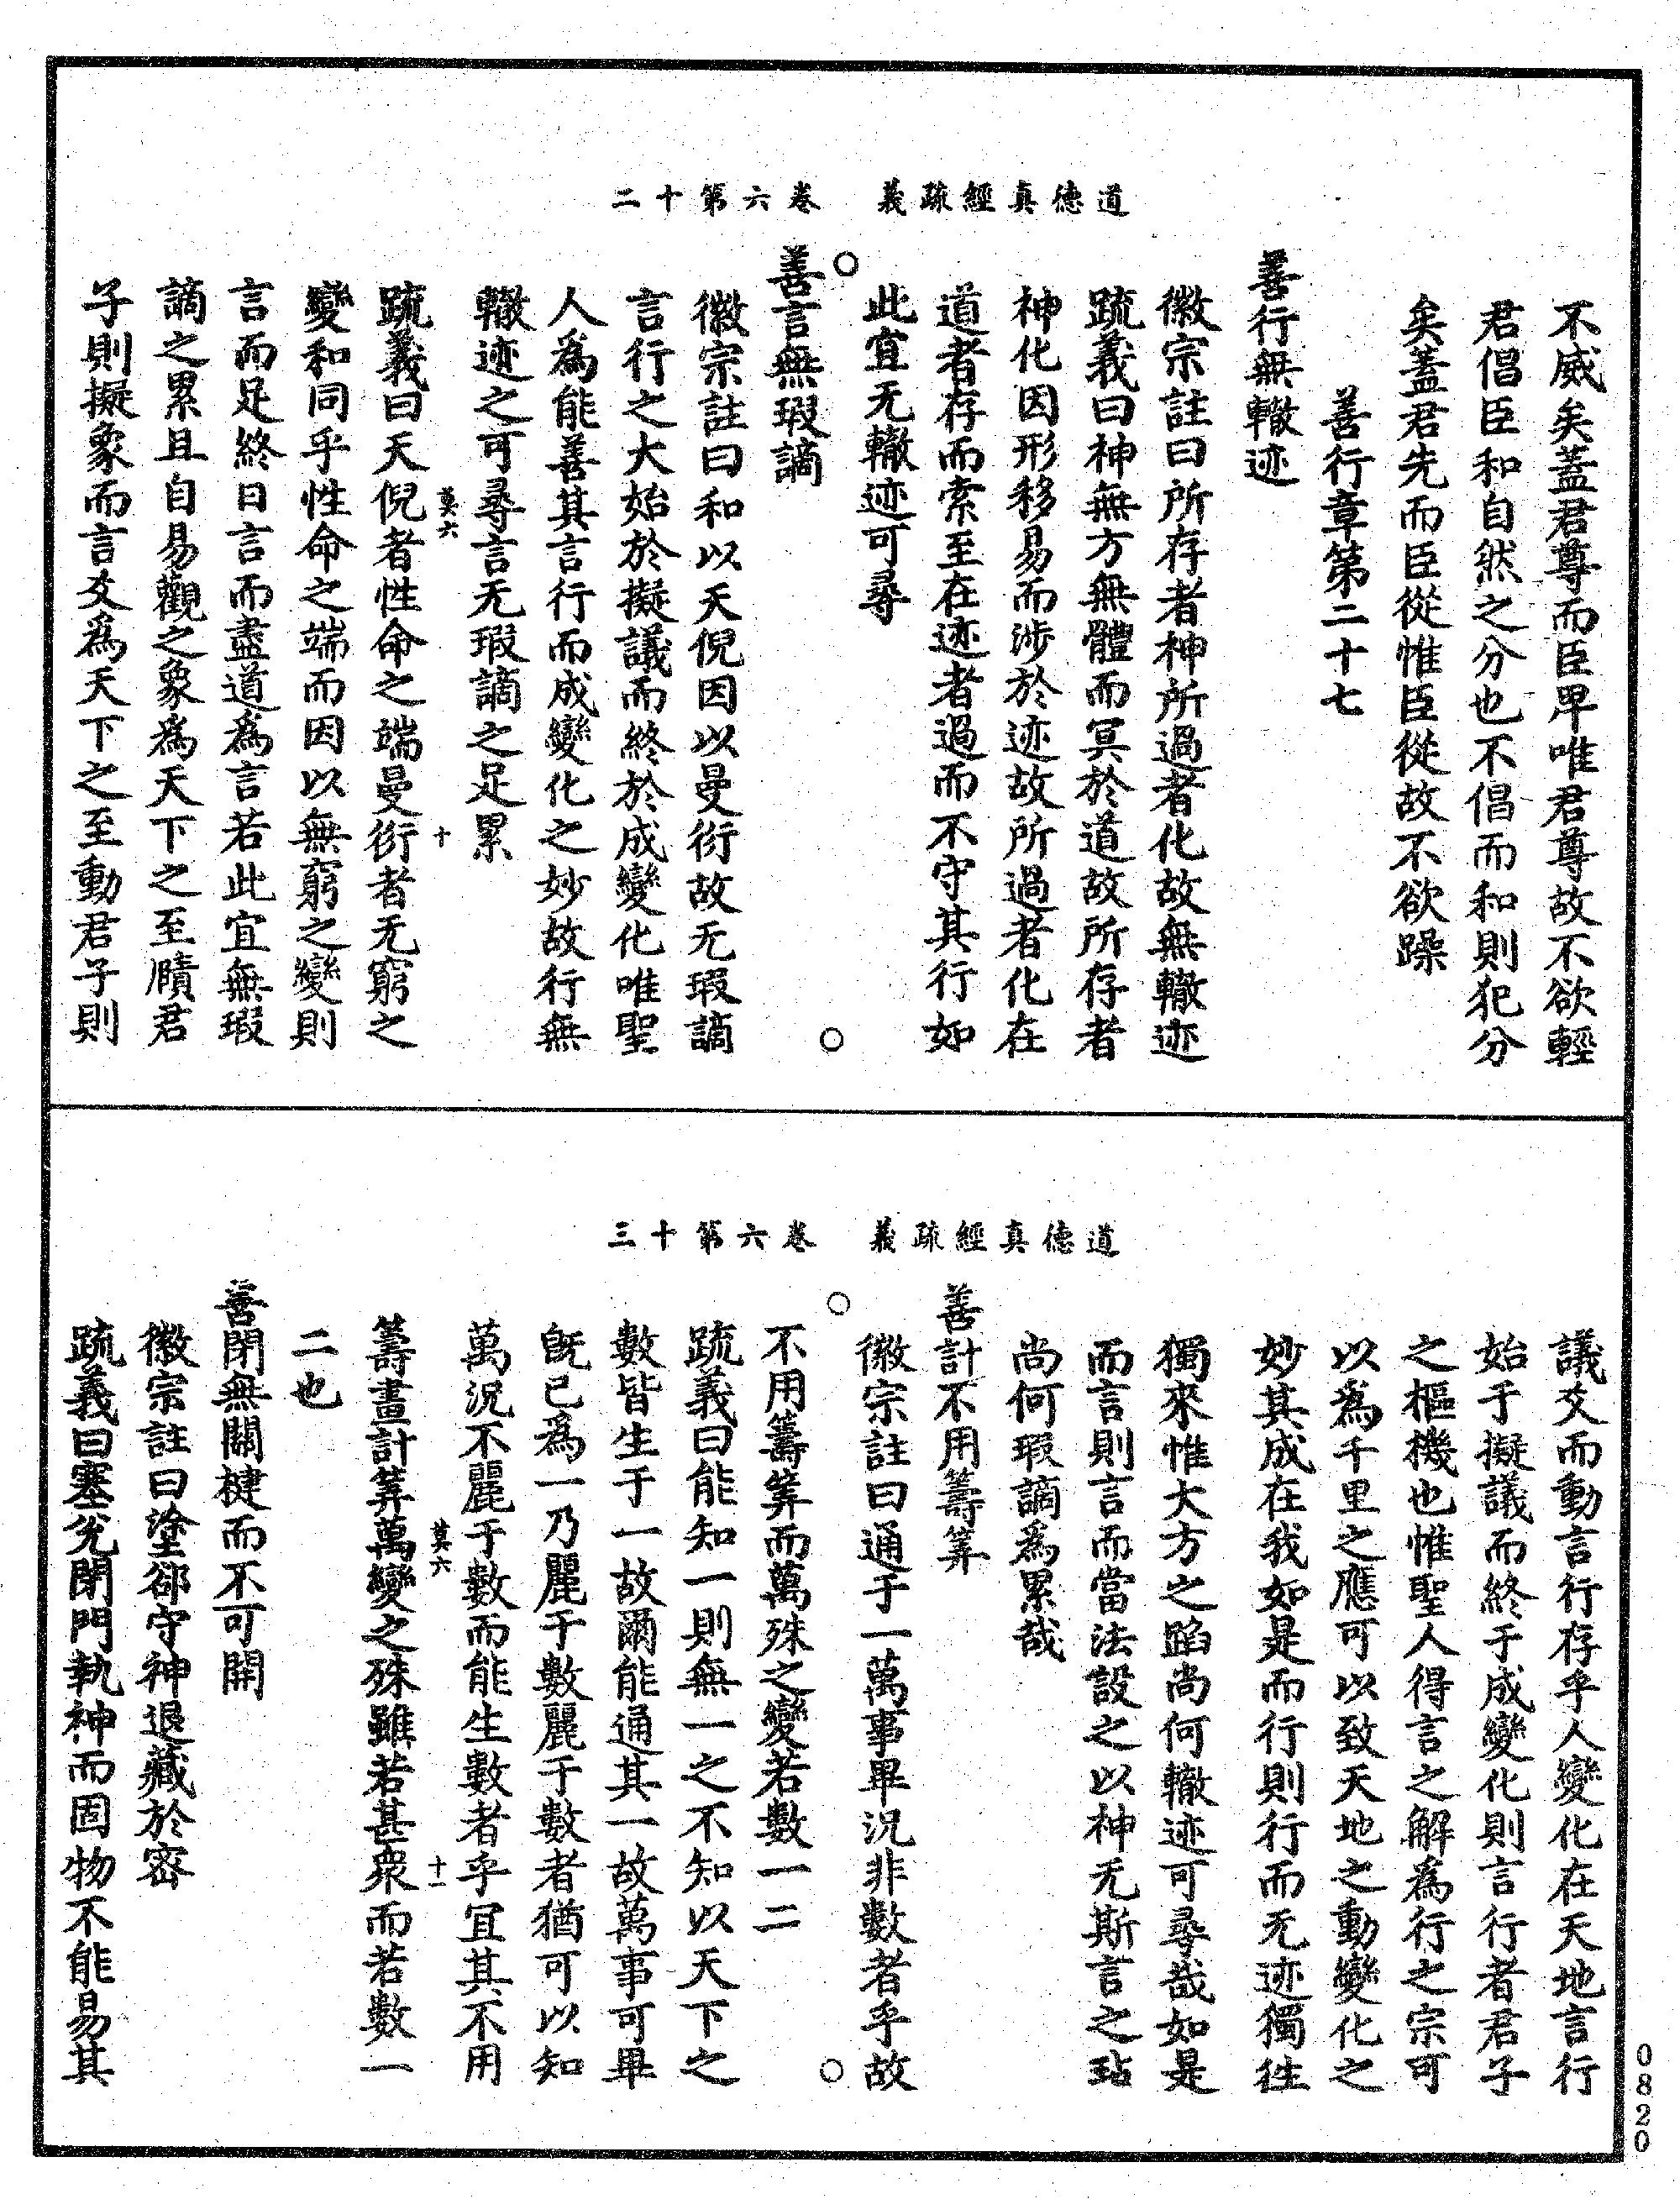 道德真經疏義　卷六第十二
不威矣蓋君尊而臣卑唯君尊故不欲輕
君倡臣和自然之分也不倡而和則犯分
矣蓋君先而臣從惟臣從故不欲躁
善行章第二十七
善行無轍迹
徽宗註曰所存者神所過者化故無轍迹
疏義曰神無方無體而冥於道故所存者
神化因形移易而涉於迹故所過者化在
道者存而索至在迹者過而不守其行如
此宜无轍迹可尋
○
善言無瑕謫
徽宗註曰和以天倪因以曼衍故无瑕謫
言行之大始於擬議而終於成變化唯聖
人為能善其言行而成變化之妙故行無
轍迹之可尋言无瑕謫之足累
莫六　十
疏義曰天倪者性命之端曼衍者无窮之
變和同乎性命之端而因以無窮之變則
言而足終日言而盡道為言若此宜無瑕
謫之累且自易觀之象為天下之至賾君
子則擬象而言爻為天下之至動君子則
道德真經疏義　卷六第十三
議爻而動言行存乎人變化在天地言行
始于擬議而終于成變化則言行者君子
之樞機也惟聖人得言之解為行之宗可
以為千里之應可以致天地之動變化之
妙其成在我如是而行則行而无迹獨徃
獨來惟大方之蹈尚何轍迹可尋哉如是
而言則言而當法設之以神无斯言之玷
尚何瑕謫為累哉
善計不用籌筭
徽宗註曰通于一萬事畢況非數者乎故
○
不用籌筭而萬殊之變若數一二
疏義曰能知一則無一之不知以天下之
數皆生于一故爾能通其一故萬事可畢
既已為一乃麗于數麗于數者猶可以知
萬況不麗于數而能生數者乎宜其不用
莫六　十一
籌畫計筭萬變之殊雖若甚衆而若數一
二也
善閉無關楗而不可開
徽宗註曰塗郤守神退藏於密
疏義曰塞兌閉門執神而固物不能易其
0820